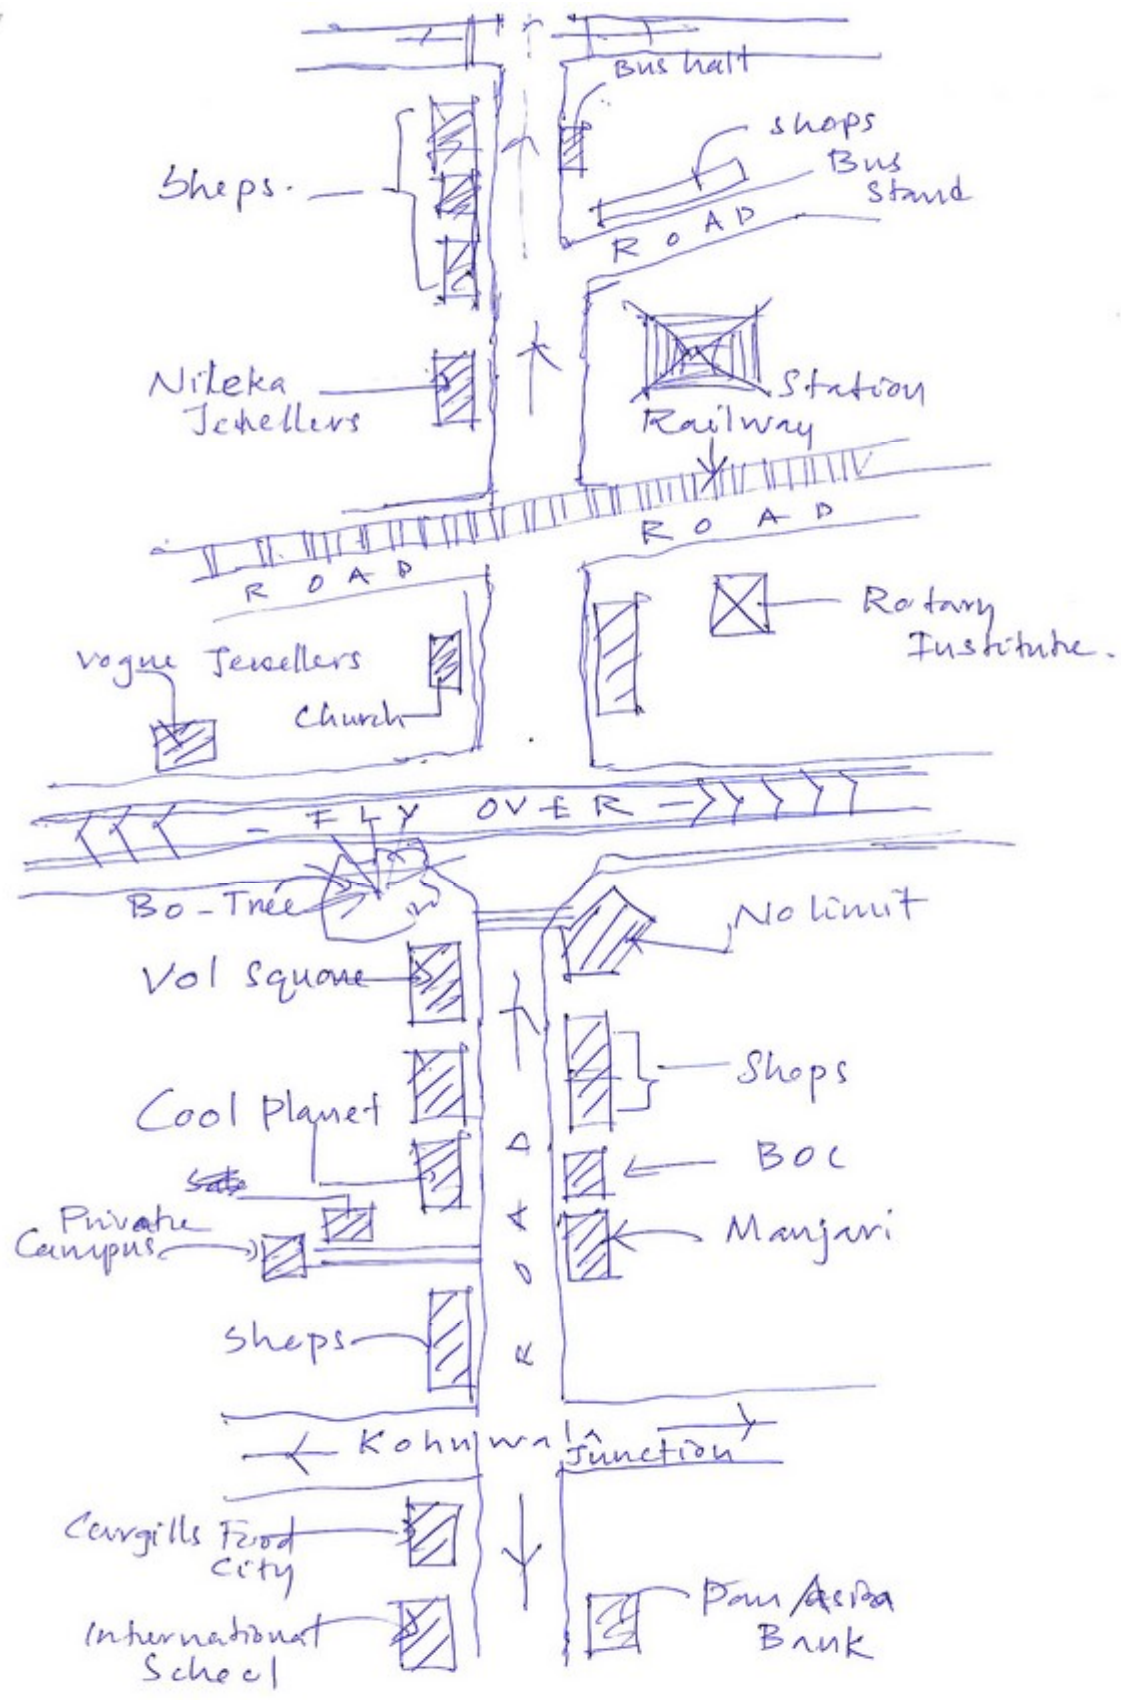 Bus halt
shops
Bus
Stand
Shops.
ROAD
Nileka
Jewellers
Station
Railway
ROAD
ROAD
Rotary
Institute.
Vogue Jewellers
Church
FLY OVER
Bo-Tree
No limit
Vol Square
Shops
Cool Planet
BOC
Private
Campus
Manjari
ROAD
Shops
Kohuwala Junction
Cargills Food
City
Pan Asia
Bank
International
School